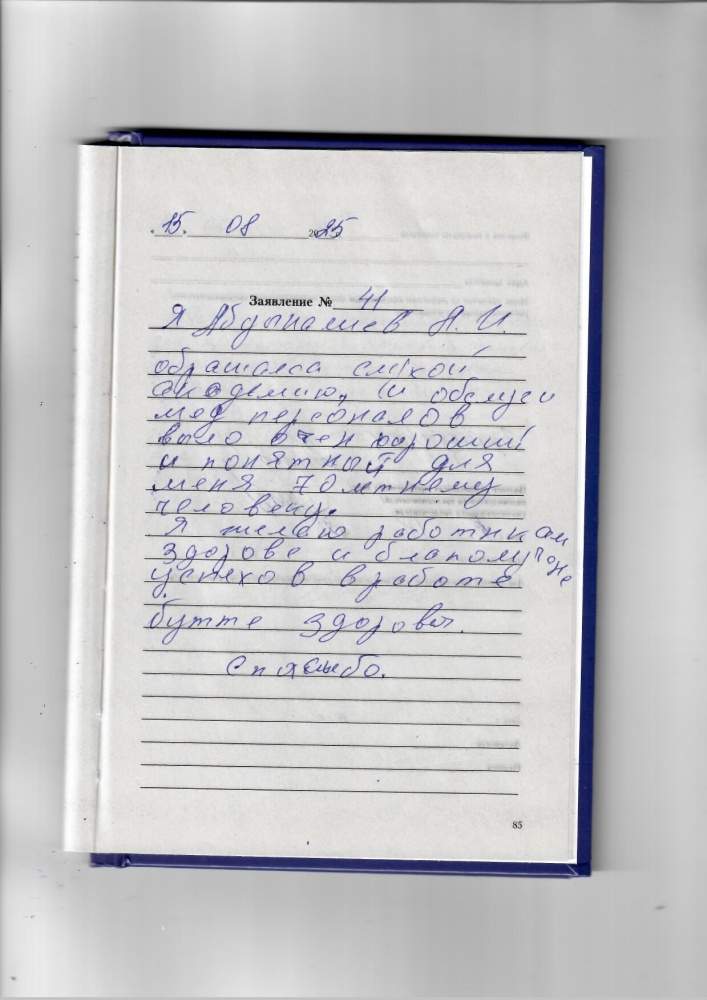 «15» 08 2025
Заявление № 41
Я Абдыкашев А. И.
обрашалса
академию, и обслуги
мед персоналов
было очен хороший
и понятный для
меня 70 летнему
человеку.
Я желаю работникам
здорове и благополучоне
успехов в работе
бутте здоровы.
Спасыбо.
85